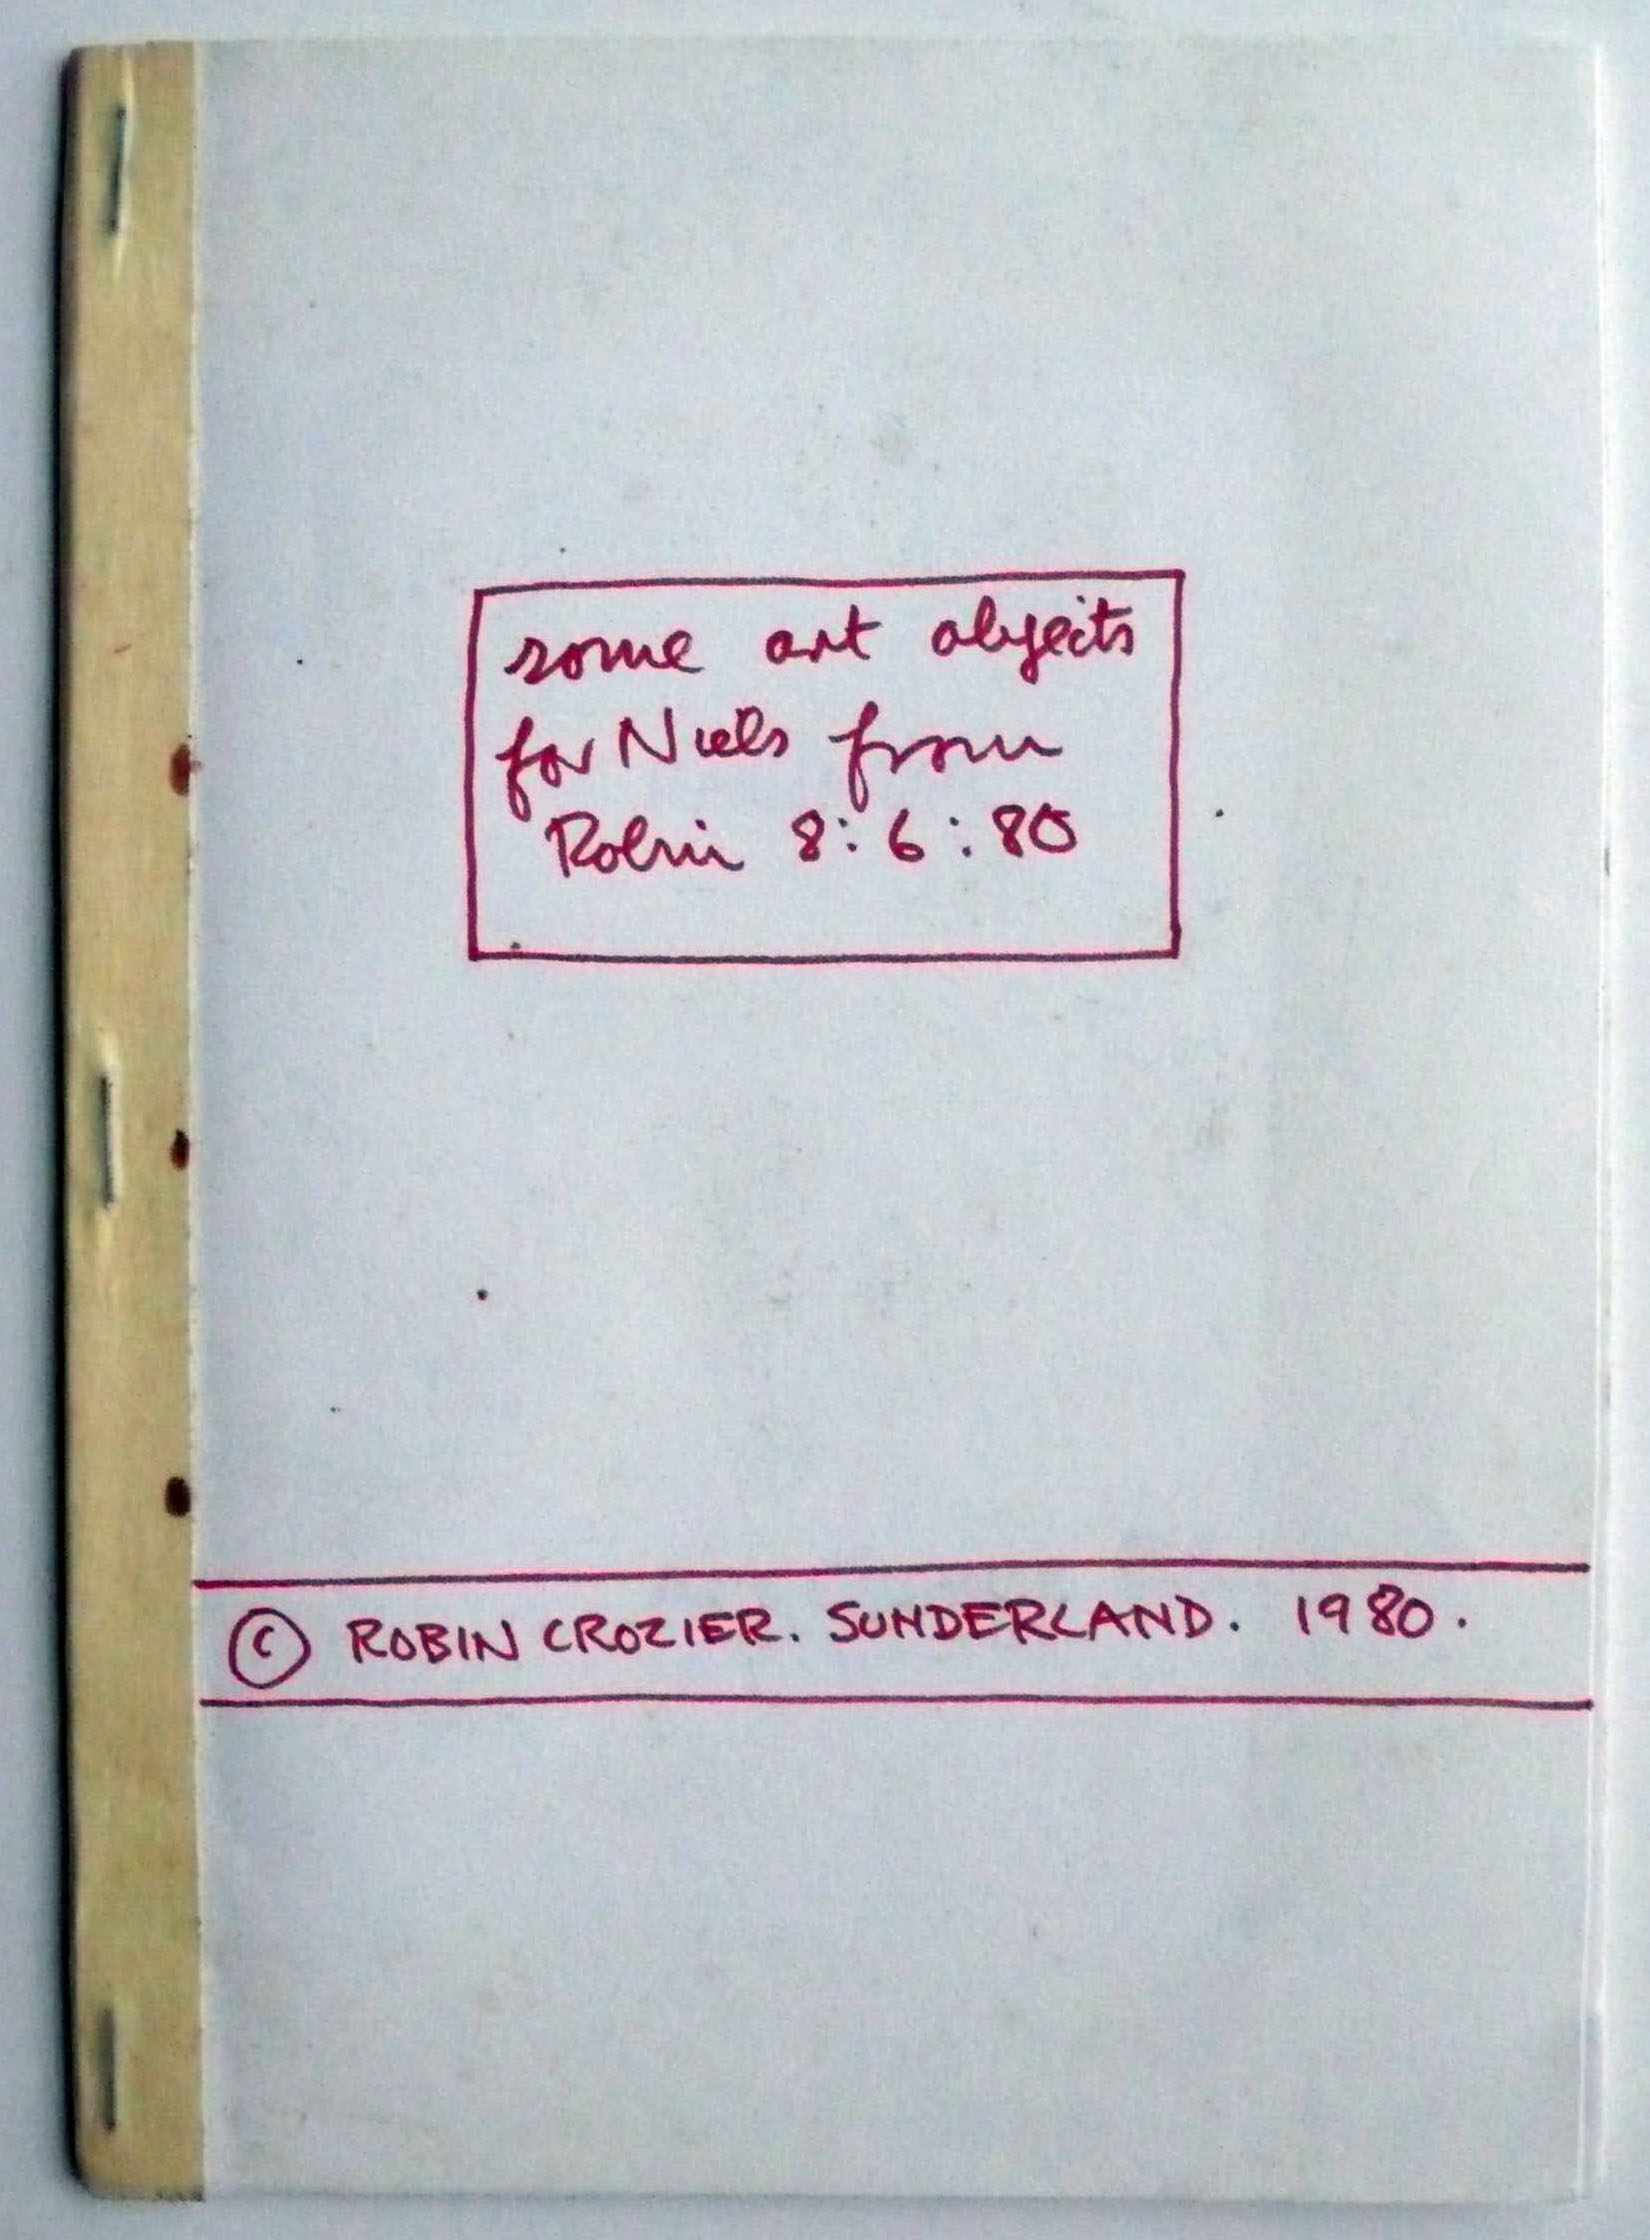 some art objects
for Niels from
Robin 8:6:80
© ROBIN CROZIER. SUNDERLAND. 1980.